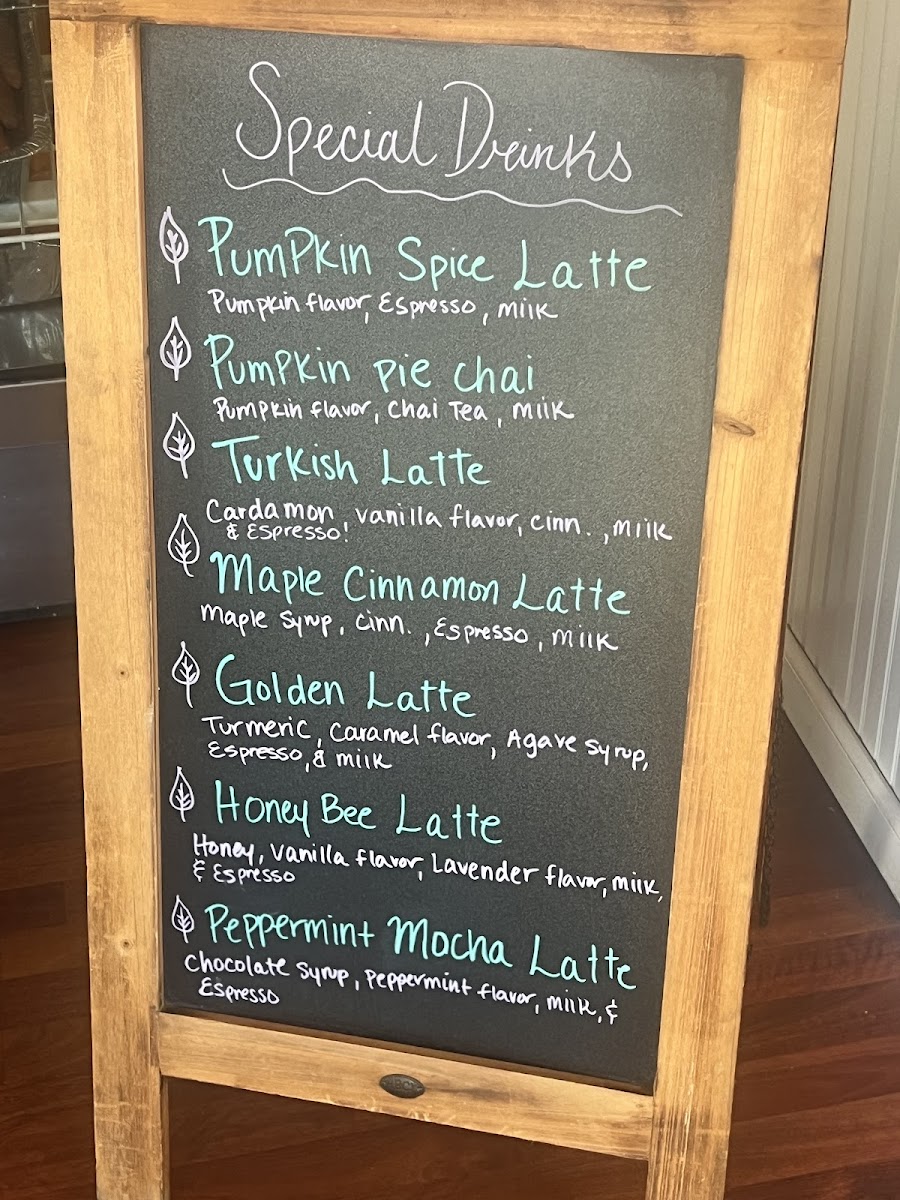 Special Drinks
Pumpkin Spice Latte
Pumpkin flavor, Espresso, milk
Pumpkin pie chai
Pumpkin flavor, Chai Tea, milk
Turkish Latte
Cardamon, vanilla flavor, cinn., milk
& Espresso!
Maple Cinnamon Latte
Maple Syrup, cinn., Espresso, milk
Golden Latte
Turmeric, Caramel flavor, Agave syrup,
Espresso, & milk
Honey Bee Latte
Honey, vanilla flavor, Lavender flavor, milk,
& Espresso
Peppermint Mocha Latte
Chocolate Syrup, Peppermint flavor, milk, &
Espresso